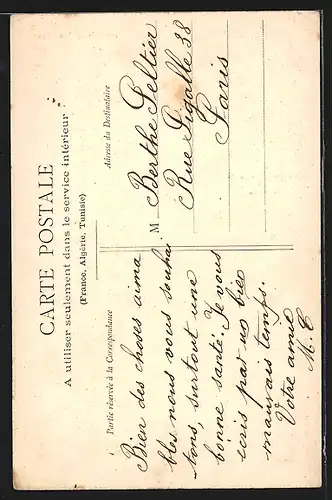 CARTE POSTALE
A utiliser seulement dans le service intérieur
(France, Algérie, Tunisie)
Partie réservée à la Correspondance
Adresse du Destinataire
Bien des choses aima
bles nous vous souhai
tons, surtout une
bonne santé. Je vous
écris par un bien
mauvais temps.
Votre amie
M. C
M Berthe Peltier
Rue Pigalle 38
Paris